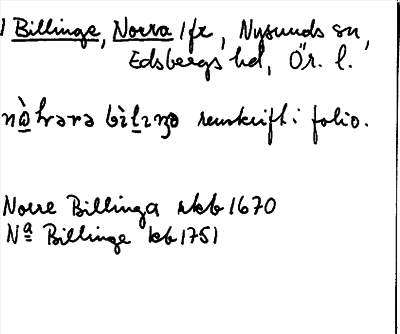 Billinge, Norra /fr, Nysunds sn,
Edsbergs hd, Ör. l.
renskrift i folio.
Norre Billinga skb 1670
Nª Billinge kb 1751